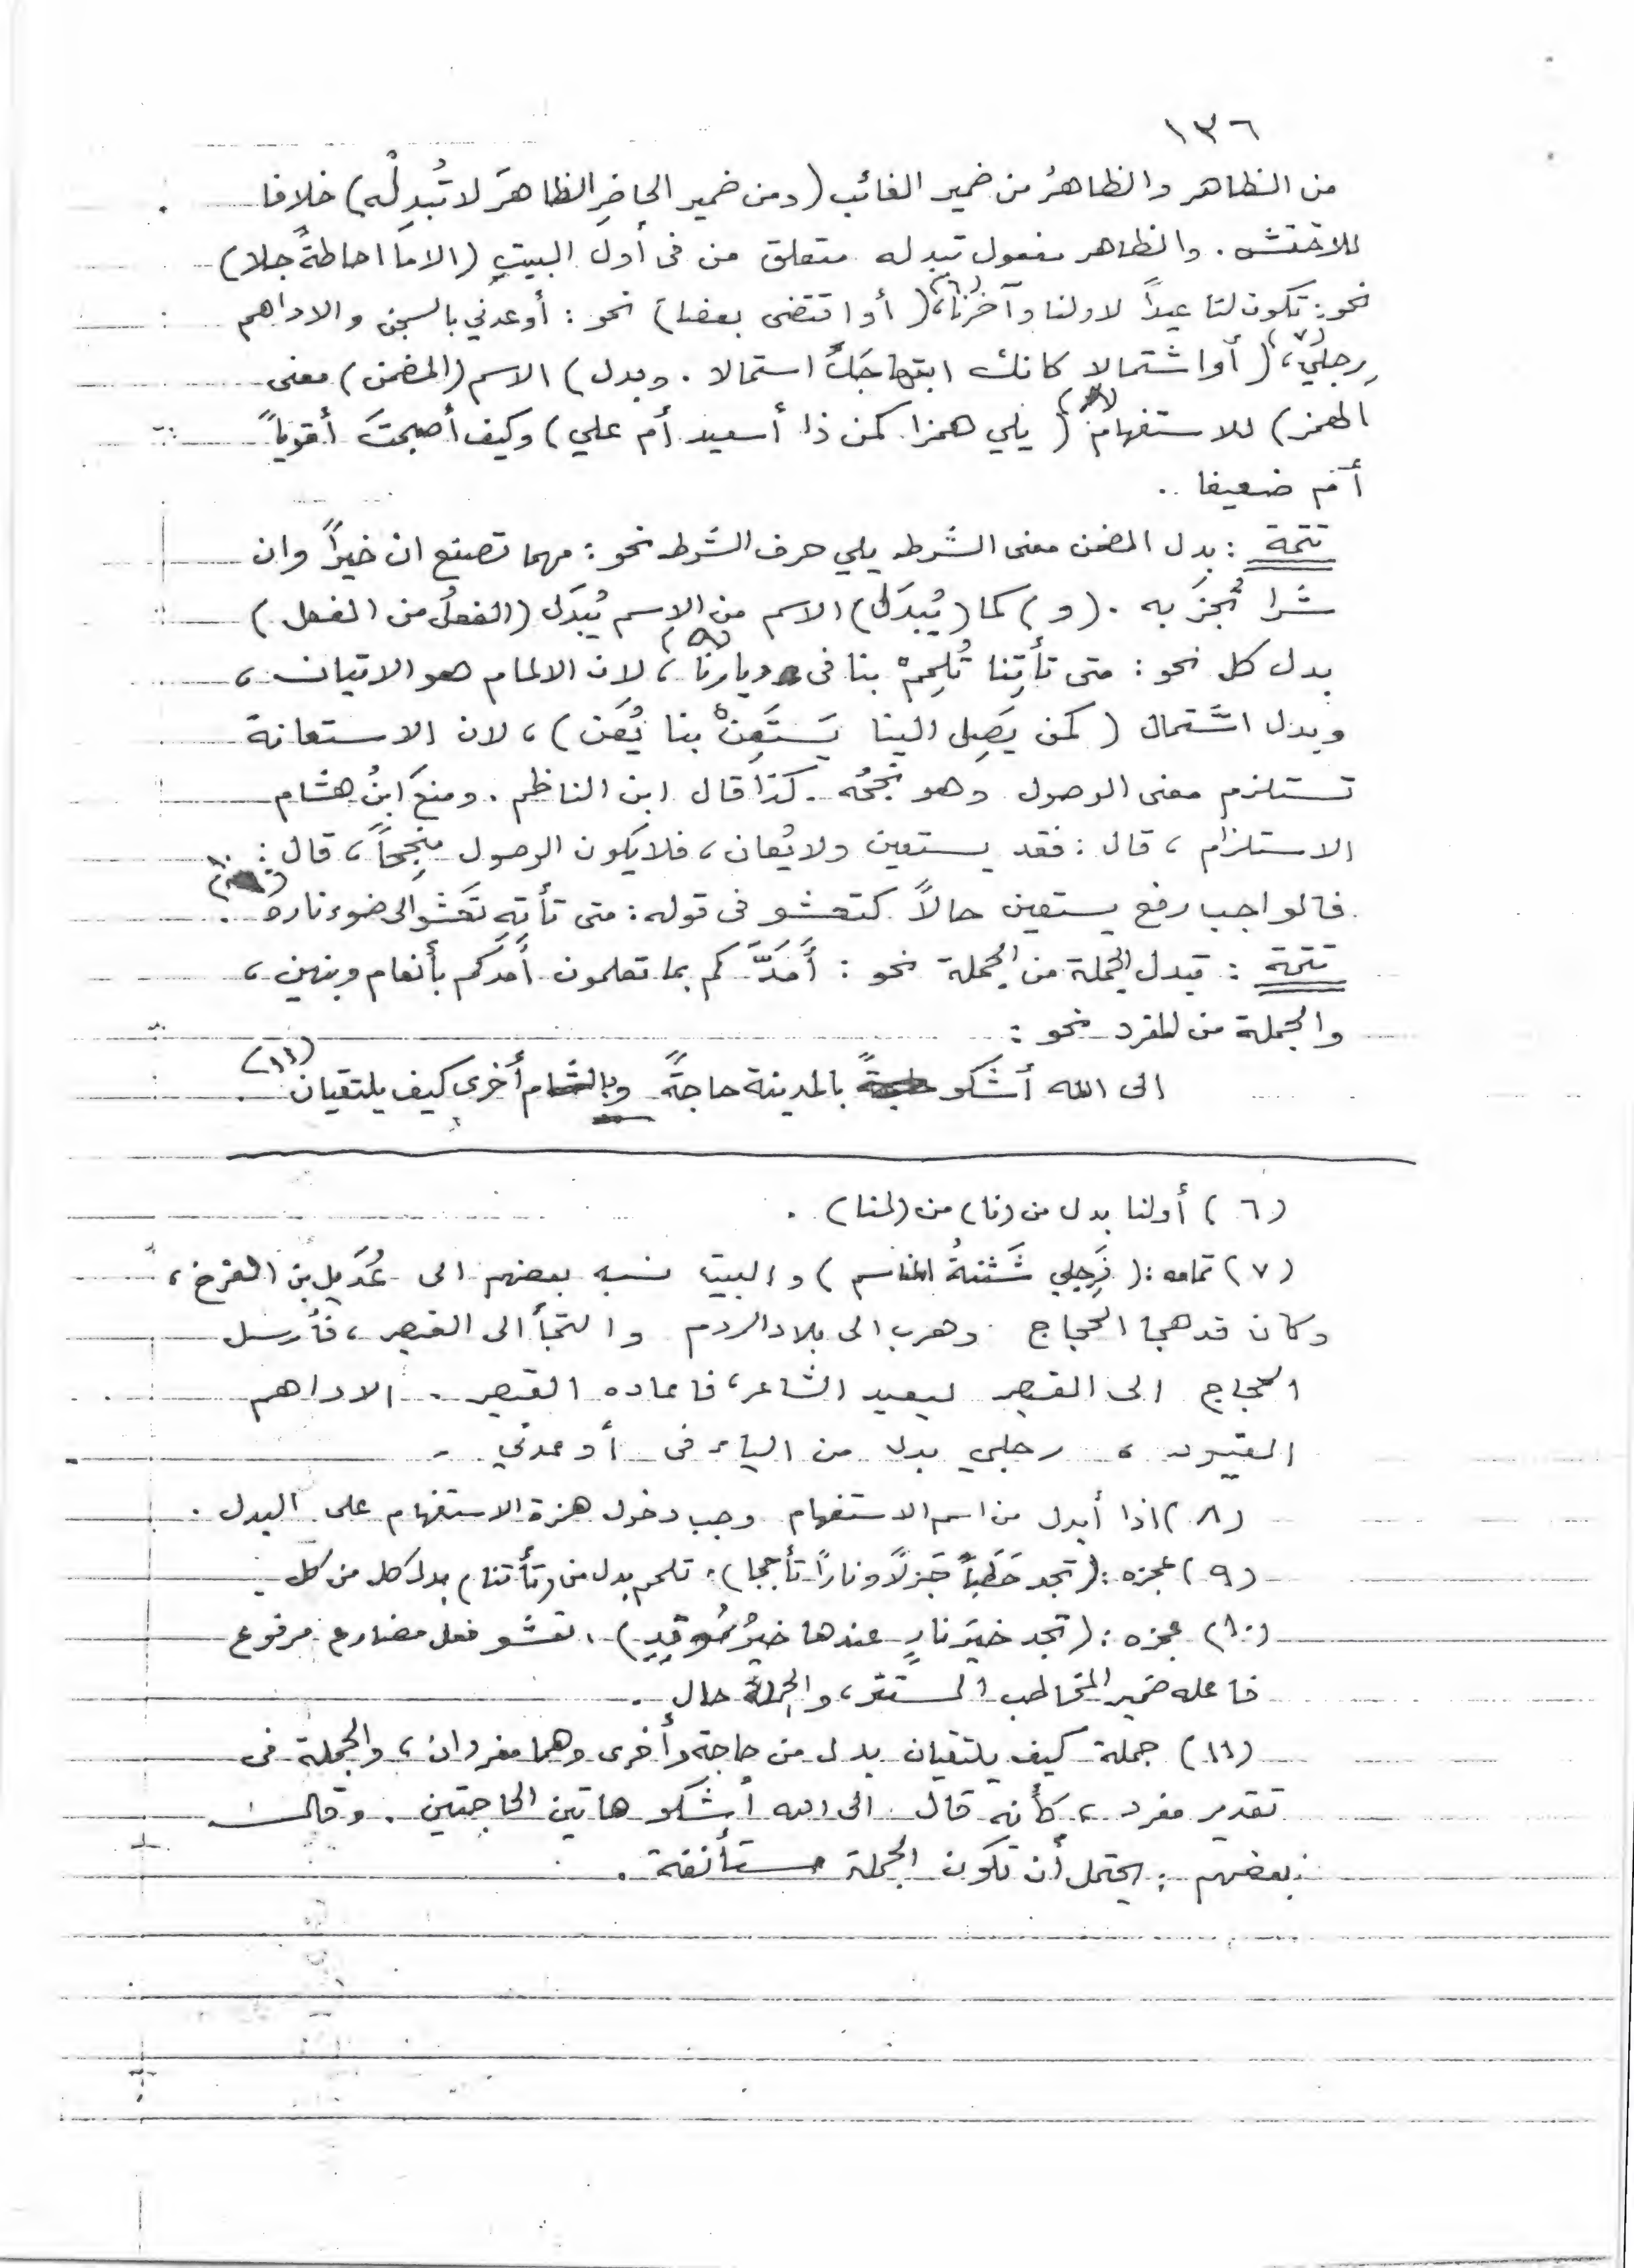 ١٣٦
من الظاهر والظاهرُ من ضمير الغائب (ومن ضمير الحاضِرِ الظاهرَ لا تُبدِلْه) خلافا
للاخفش . والظاهر مفعول تبدله متعلق من فى أول البيت (الا ما احاطةً جلا)
نحو: تكون لنا عيداً لاولنا وآخرنا(٦)، (أو اقتضى بعضا) نحو : أوعدني بالسجن والاداهم
رِجلي(٧)، (أو اشتمالا كانك ابتهاجَكَ استمالا . وبدل) الاسم (المضمن) معنى
الهمز) للاستفهام(٨) (يلي همزا كمن ذا أسعيد أم علي) وكيف أصبحتَ أقوياً
أم ضعيفا ..
تتمة : بدل المضمن معنى الشرط يلي حرف الشرط نحو : مهما تصنع ان خيراً وان
شرا تُجزَ به . (و) كما (يُبدَلُ) الاسم من الاسم يُبدَل (الفعلُ من الفعل)
بدل كل نحو : متى تأتِنا تُلمِمْ بنا فى ديارنا(٩)، لان الالمام هو الاتيان ،
وبدل اشتمال (كمن يَصِل الينا يَستَعِنْ بنا يُعَن) ، لان الاستعانة
تستلزم معنى الوصول وهو نُجحُه . كذا قال ابن الناظم . ومنعَ ابنُ هشام
الاستلزام ، قال : فقد يستعين ولا يُعان ، فلا يكون الوصول مُنجِحاً ، قال :
فالواجب رفع يستعين حالاً كتعشو فى قوله : متى تأتِهِ تَعشو الى ضوء ناره(١٠) .
تتمة : تبدل الجملة من الجملة نحو : أَمَدَّكم بما تعلمون أمدكم بأنعام وبنين ،
والجملة من المفرد نحو :
الى الله أشكو بالمدينة حاجةً وبالشام أخرى كيف يلتقيان(١١) .
(٦) أولنا بدل من (نا) من (لنا) .
(٧) تمامه : (فَرِجلي شَثنةُ المناسم) والبيت نسبه بعضهم الى عُدَيل بن الفرخ ،
وكان قد هجا الحجاج وهرب الى بلاد الروم والتجأ الى القيصر ، فأرسل
الحجاج الى القيصر ليعيد الشاعر ، فاعاده القيصر . الاداهم
القيود ، رجلي بدل من الياء فى أوعدني .
(٨) اذا أبدل من اسم الاستفهام وجب دخول همزة الاستفهام على البدل .
(٩) عجزه : (تجد حَطَباً جَزلاً وناراً تأججا) . تلمم بدل من (تأتنا) بدل كل من كل .
(١٠) عجزه : (تجد خيرَ نارٍ عندها خيرُ مُوقِدِ) . تعشو فعل مضارع مرفوع
فاعله ضمير المخاطب المستتر ، والجملة حال .
(١١) جملة كيف يلتقيان بدل من حاجة وأخرى وهما مفردان ، والجملة فى
تقدير مفرد ، كأنه قال الى الله أشكو هاتين الحاجتين . وقالت
بعضهم : يحتمل أن تكون الجملة مستأنفة .